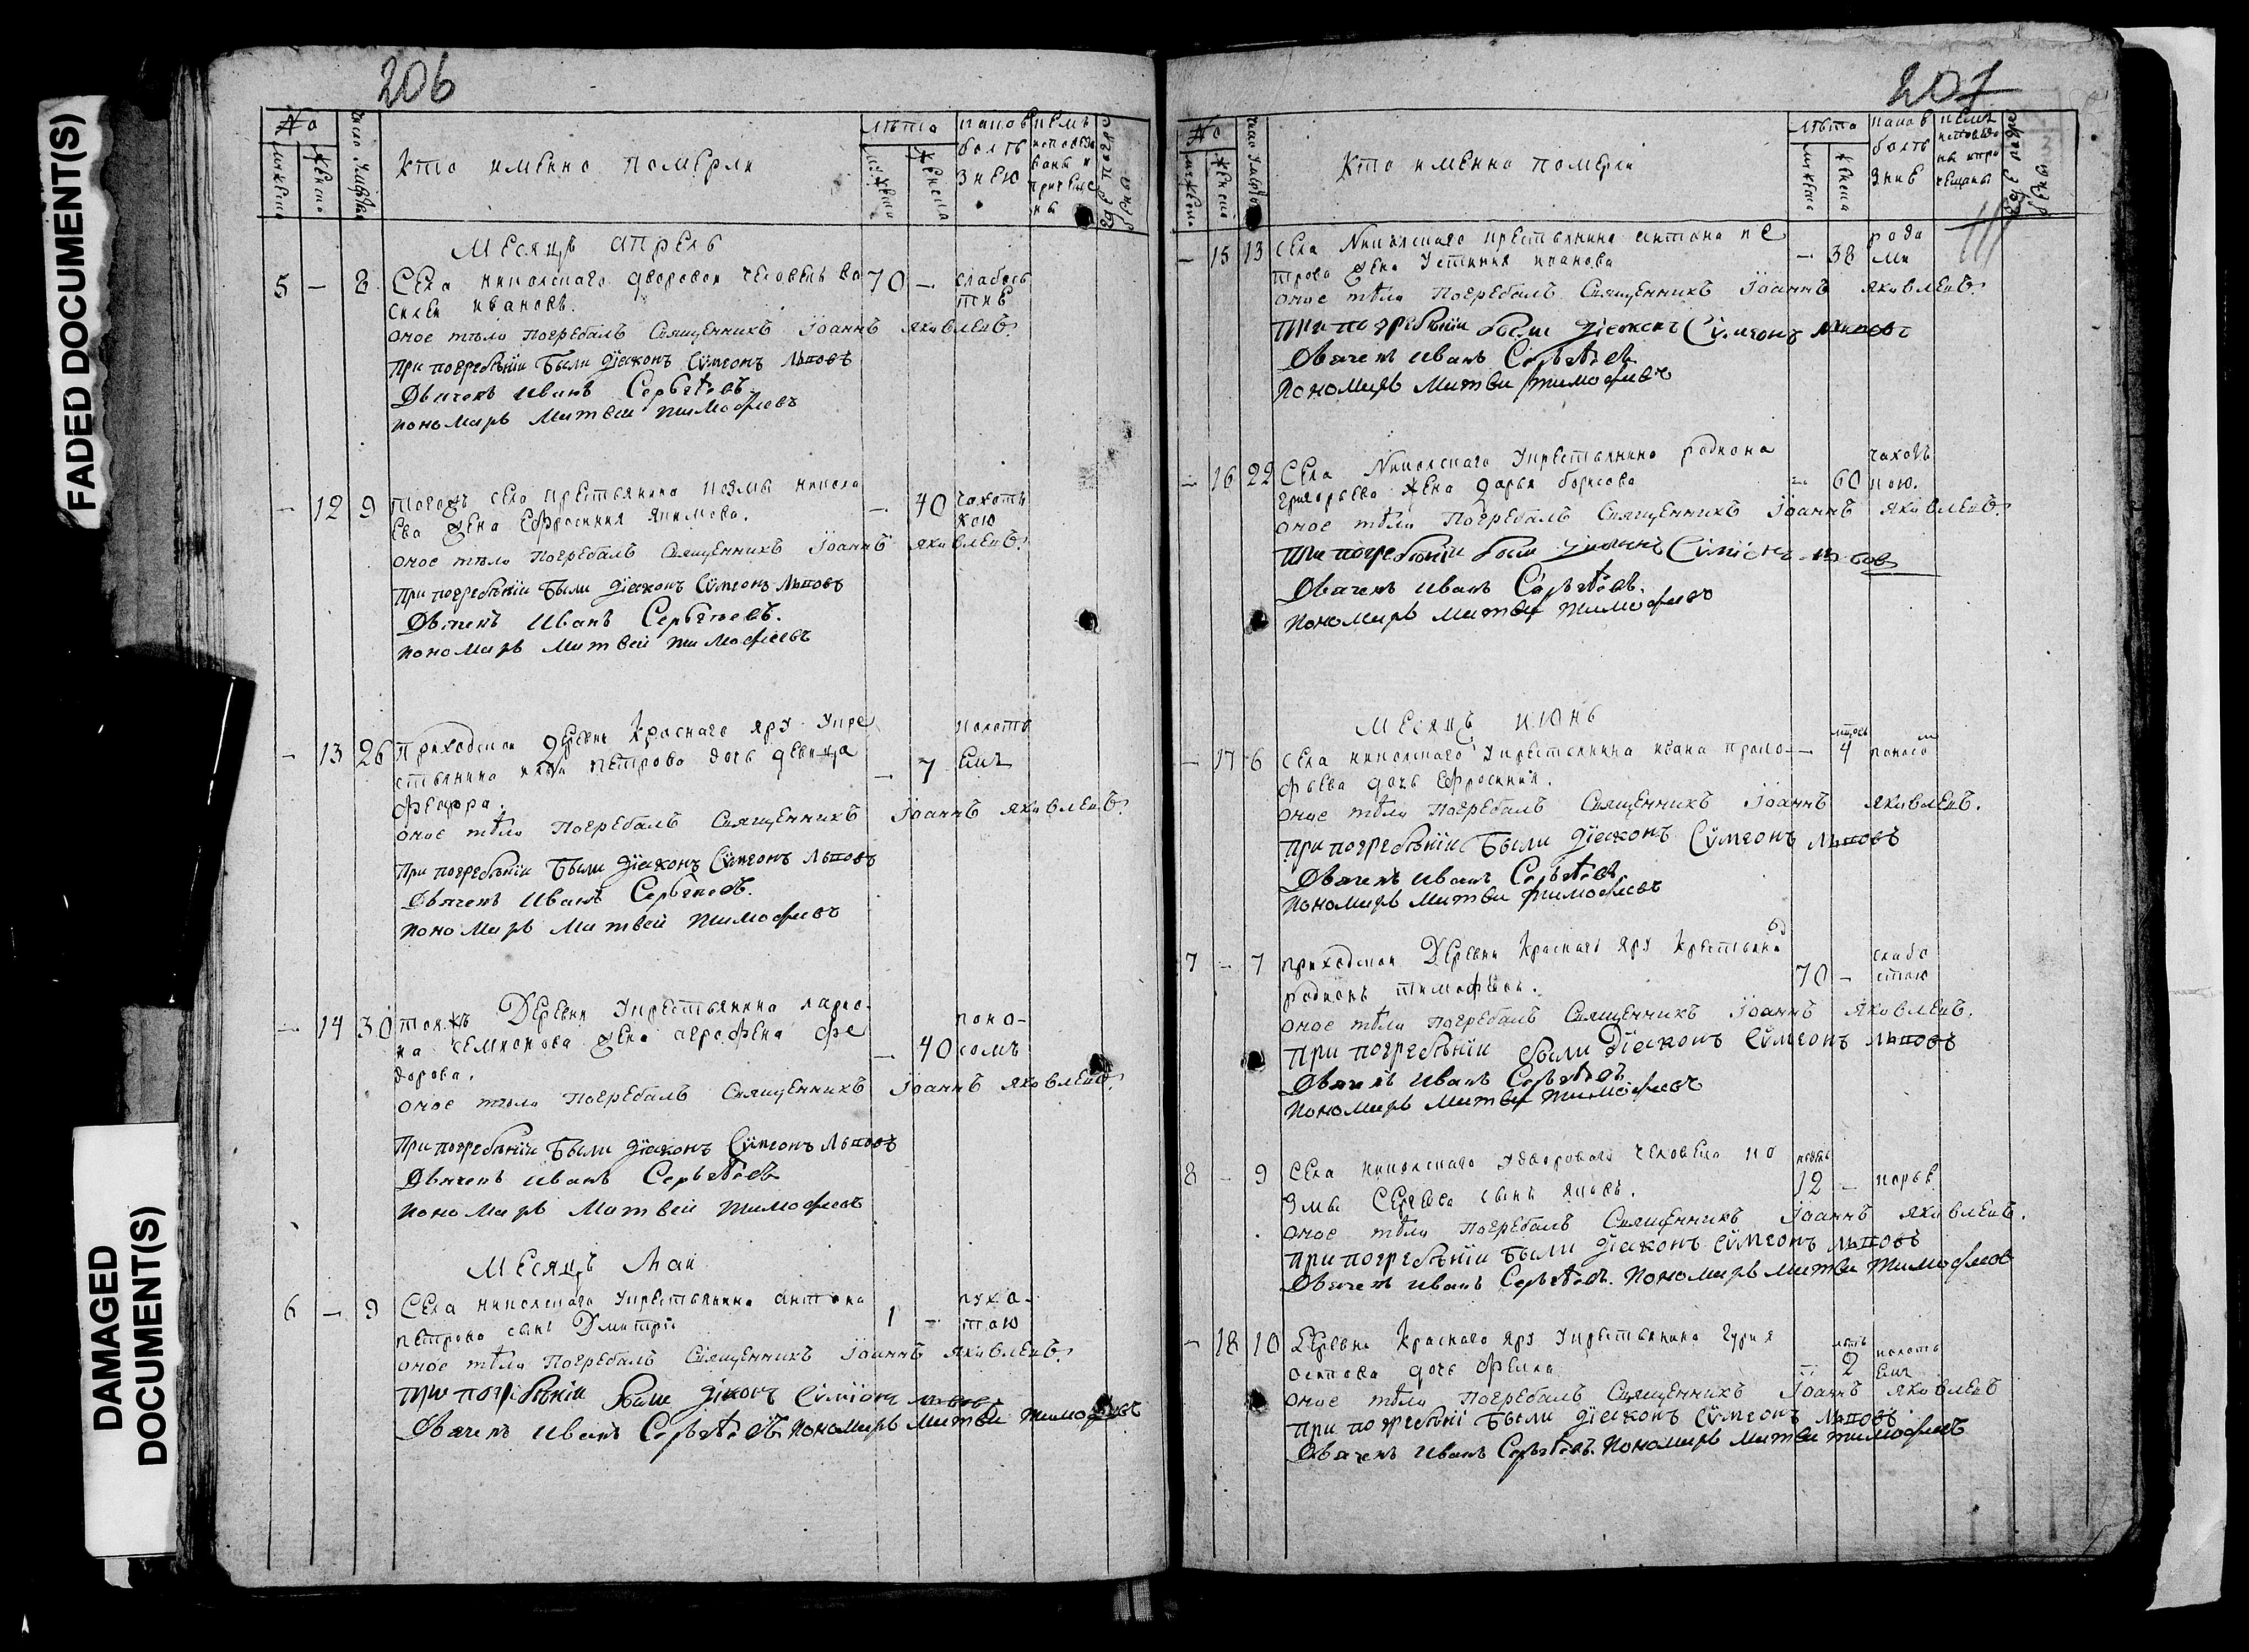 FADED DOCUMENT(S)
DAMAGED
DOCUMENT(S)
206
№
мужеска
женска
Кто имено померли
лѣта
мужеска
женска
какою
болѣ
знею
кемъ
исповеда
ваны и
приобще
ны
Месяцъ апрель
5 — 8 Села никольскаго дворовои человекъ ва 70 — слабось
силеи ивановъ. тиѣ
оное тѣло погребалъ Священникъ Іоаннъ яковлевъ.
При погребѣніи были діаконъ Сѵмеонъ Львовъ
Дьячекъ иванъ Сергѣевъ
пономарь Матвеи тимофеевъ
— 12 9 тогожъ села крестьянина козмы никола — 40 чахоть
ева жена ефросиния якимова. кою
оное тѣло погребалъ Священникъ Іоаннъ яковлевъ.
При погребѣніи были діаконъ Сѵмеонъ Львовъ
Дьячекъ иванъ Сергѣевъ.
пономарь Матвеи тимофеевъ
— 13 26 Приходскои деревни Краснаго яру Укре колоть
стьянина петрова дочь девица — 7 емъ
оное тѣло погребалъ Священникъ Іоаннъ яковлевъ.
При погребѣніи были діаконъ Сѵмеонъ Львовъ
Дьячекъ иванъ Сергѣевъ.
пономарь Матвей тимофеевъ
— 14 30 тоя жъ Деревни Укрестьянина ларио- поно-
на семионова жена агрофена фе — 40 сомъ
дорова.
оное тѣло погребалъ Священникъ Іоаннъ яковлевъ.
При погребѣніи были діаконъ Сѵмеонъ Львовъ
Дьячекъ иванъ Сергѣевъ
пономарь Матвей тимофеевъ
Месяцъ Маи
6 — 9 Села никольскаго Укрестьянина антона 1 — сухо-
петрова сынъ Дмитрiи тою
оное тѣло погребалъ Священникъ Іоаннъ яковлевъ.
при погребѣніи были діяконъ Сѵмионъ Львовъ
Дьячекъ иванъ Сергѣевъ. пономарь Матвѣи тимофеевъ
207
№
мужеска
женска
Кто именно померли
лѣта
мужеска
женска
каков
болѣ
зние
кемъ
исповедо
ны и при
чещены
— 15 13 села Никольскаго крестьянина антона пе — 38 рода
трова жена Устиния иванова ми
оное тѣло погребалъ Священникъ Іоаннъ яковлевъ.
При погребѣніи были діаконъ Сѵмеонъ Львовъ
Дьячекъ иванъ Сергѣевъ
пономарь Матвеи тимофеевъ
— 16 22 Села Никольскаго Укрестьянина родиона чахоть
григорьева жена дарья борисова — 60 кою.
оное тѣло погребалъ Священникъ Іоаннъ яковлевъ.
При погребѣніи были діяконъ Сѵмионъ Львовъ
Дьячекъ иванъ Сергѣевъ.
пономарь Матвеи тимофеевъ
Месяцъ июнь
— 17 6 села никольскаго Укрестьянина ивана проко — 4 поносо
фьева дочь ефросиния.
оное тѣло погребалъ Священникъ Іоаннъ яковлевъ.
При погребѣніи были діаконъ Сѵмеонъ Львовъ
Дьячекъ иванъ Сергѣевъ
пономарь Матвеи тимофеевъ
7 — 7 приходскои Деревни Краснаго яру Крестьянинъ слабо
родионъ тимофѣевъ. 70 — стию
оное тѣло погребалъ Священникъ Іоаннъ яковлевъ.
При погребѣніи были діаконъ Сѵмеонъ Львовъ
Дьячекъ иванъ Сергѣевъ
пономарь Матвеи тимофеевъ
8 — 9 села никольскаго Удвороваго человека ко недѣль
змы Сергѣева сынъ яковъ. 12 — корье
оное тѣло погребалъ Священникъ Іоаннъ яковлевъ.
При погребѣніи были діаконъ Сѵмеонъ Львовъ
Дьячекъ иванъ Сергѣевъ. пономарь Матвеи тимофеевъ
— 18 10 Деревни Краснаго яру Укрестьянина гурия лѣтъ колоть
осипова дочь фекла — 2 емъ
оное тѣло погребалъ Священникъ Іоаннъ яковлевъ
При погребѣніи были діаконъ Сѵмеонъ Львовъ.
Дьячекъ иванъ Сергѣевъ. пономарь Матвеи тимофеевъ